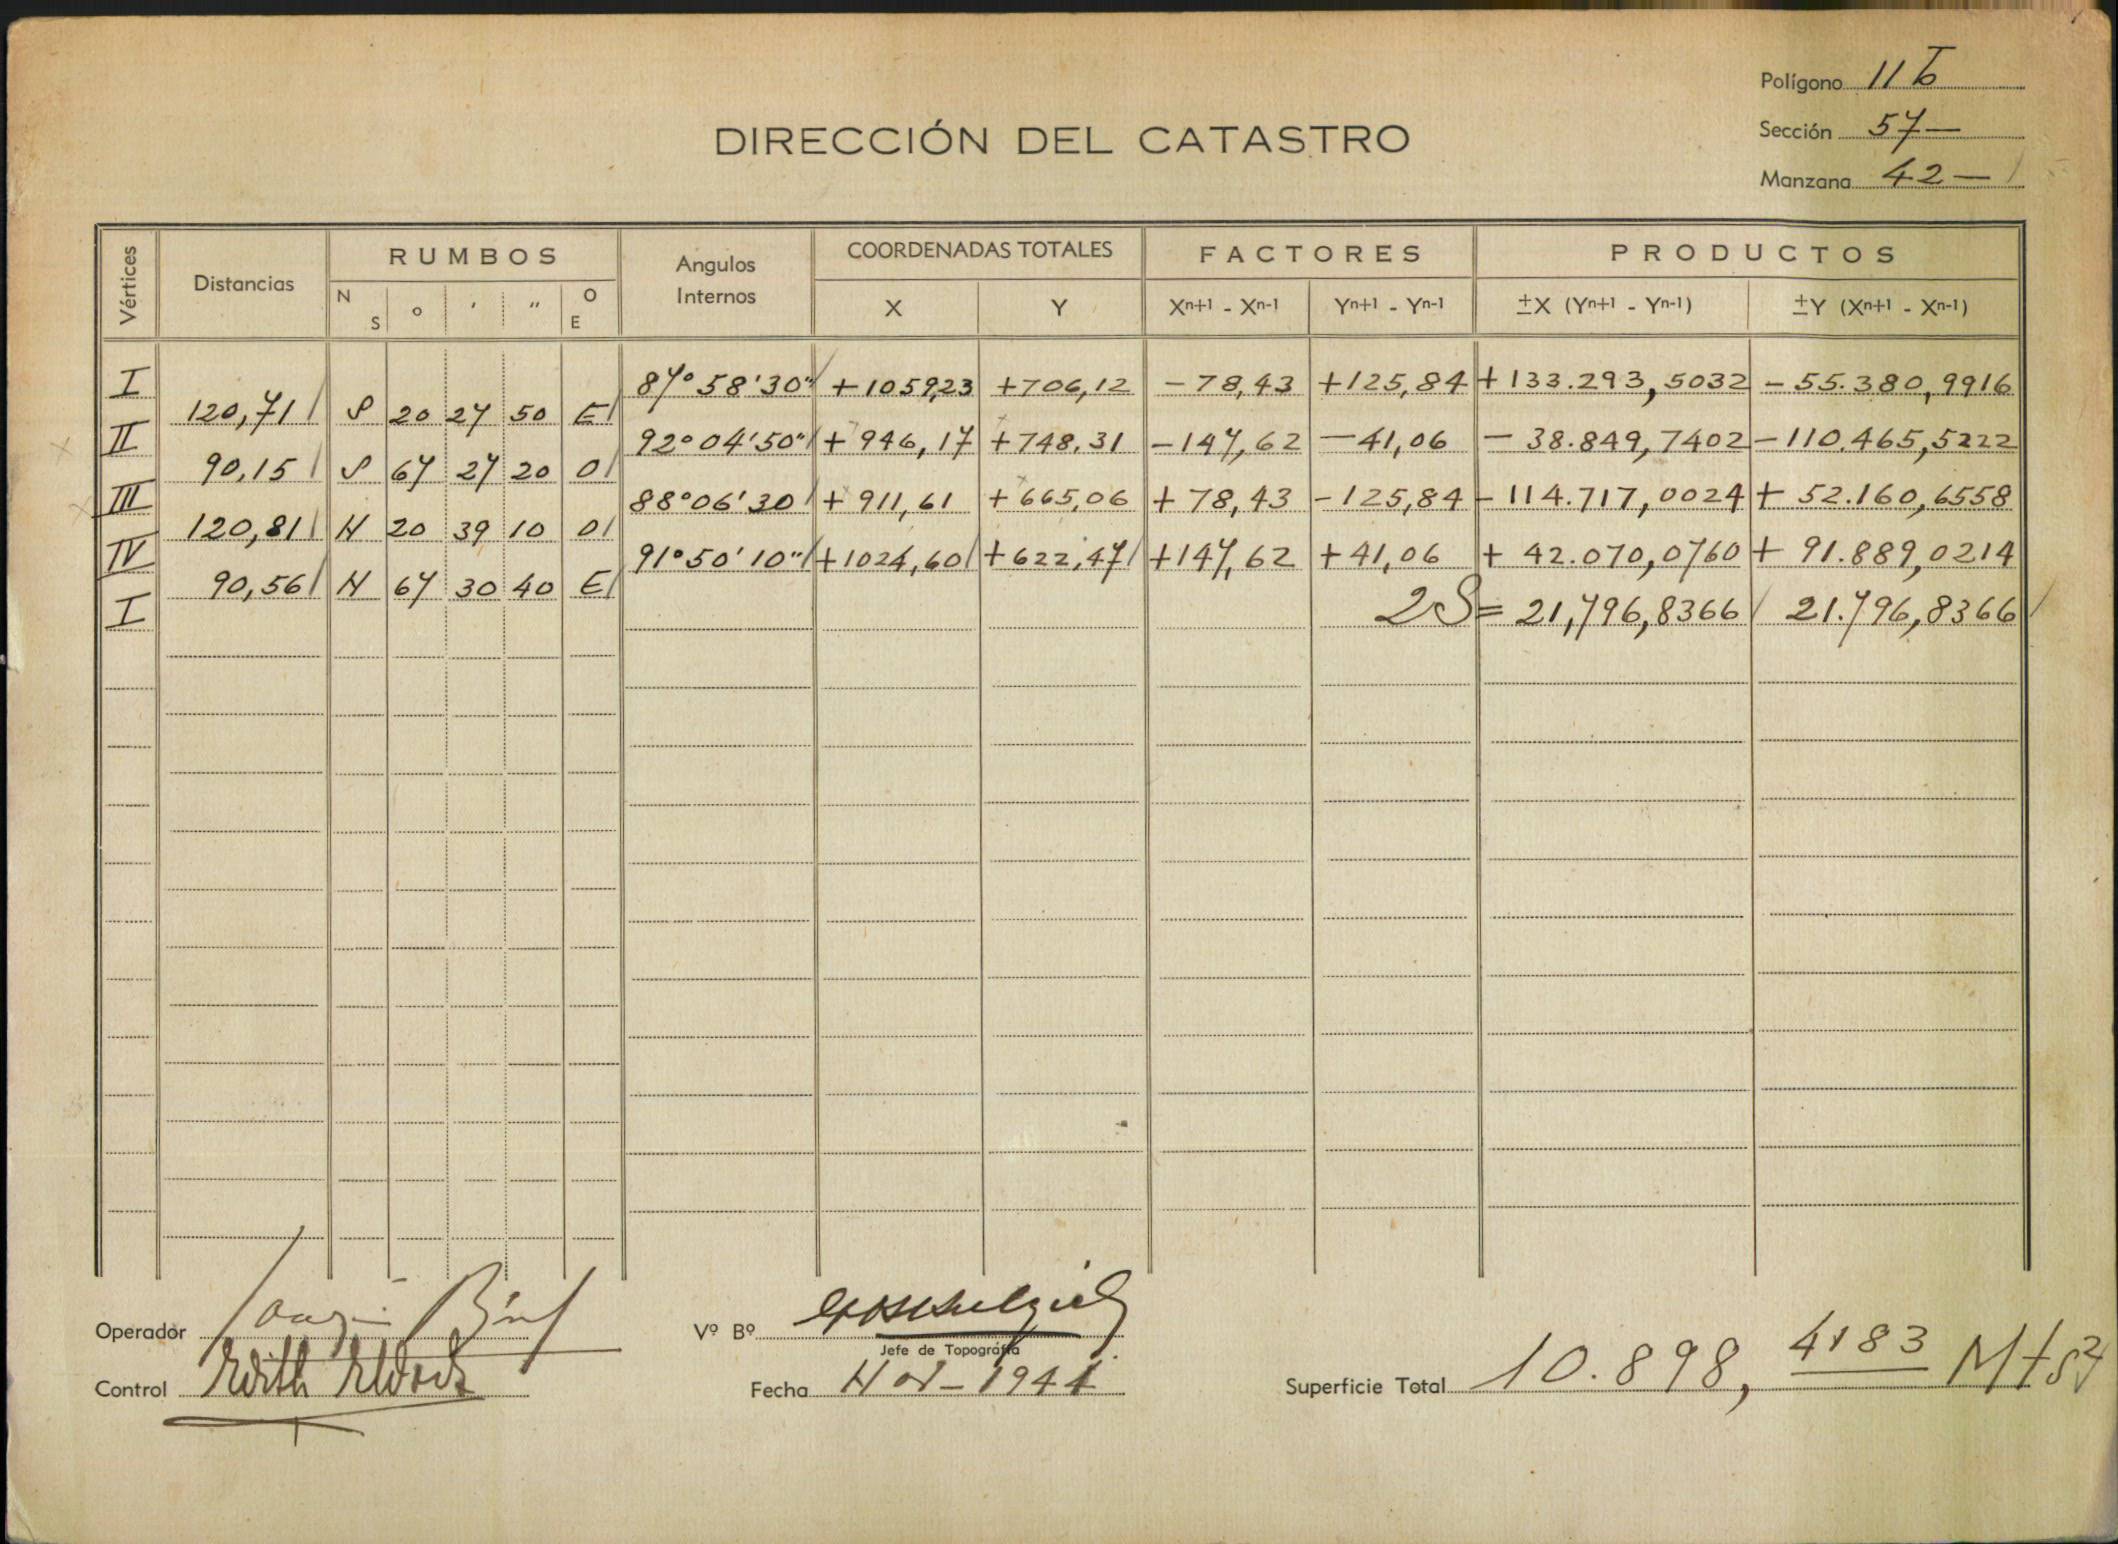 Polígono 11 b
Sección 57-
Manzana 42-
DIRECCIÓN DEL CATASTRO
Vértices Distancias RUMBOS Angulos Internos COORDENADAS TOTALES FACTORES PRODUCTOS
N S o ' " O E X Y Xn+1 - Xn-1 Yn+1 - Yn-1 ±X (Yn+1 - Yn-1) ±Y (Xn+1 - Xn-1)
I 87° 58' 30" +1059,23 +706,12 -78,43 +125,84 +133.293,5032 -55.380,9916
120,71 S 20 27 50 E
II 92° 04' 50" +946,17 +748,31 -147,62 -41,06 -38.849,7402 -110.465,5222
90,15 S 67 27 20 O
III 88° 06' 30 +911,61 +665,06 +78,43 -125,84 -114.717,0024 +52.160,6558
120,81 N 20 39 10 O
IV 91° 50' 10" +1024,60 +622,47 +147,62 +41,06 +42.070,0760 +91.889,0214
90,56 N 67 30 40 E
I 2S= 21,796,8366 21.796,8366
Operador
Vº Bº
Jefe de Topografía
Control Edith
Fecha Nov-1944
Superficie Total 10.898, 4183 Mts2